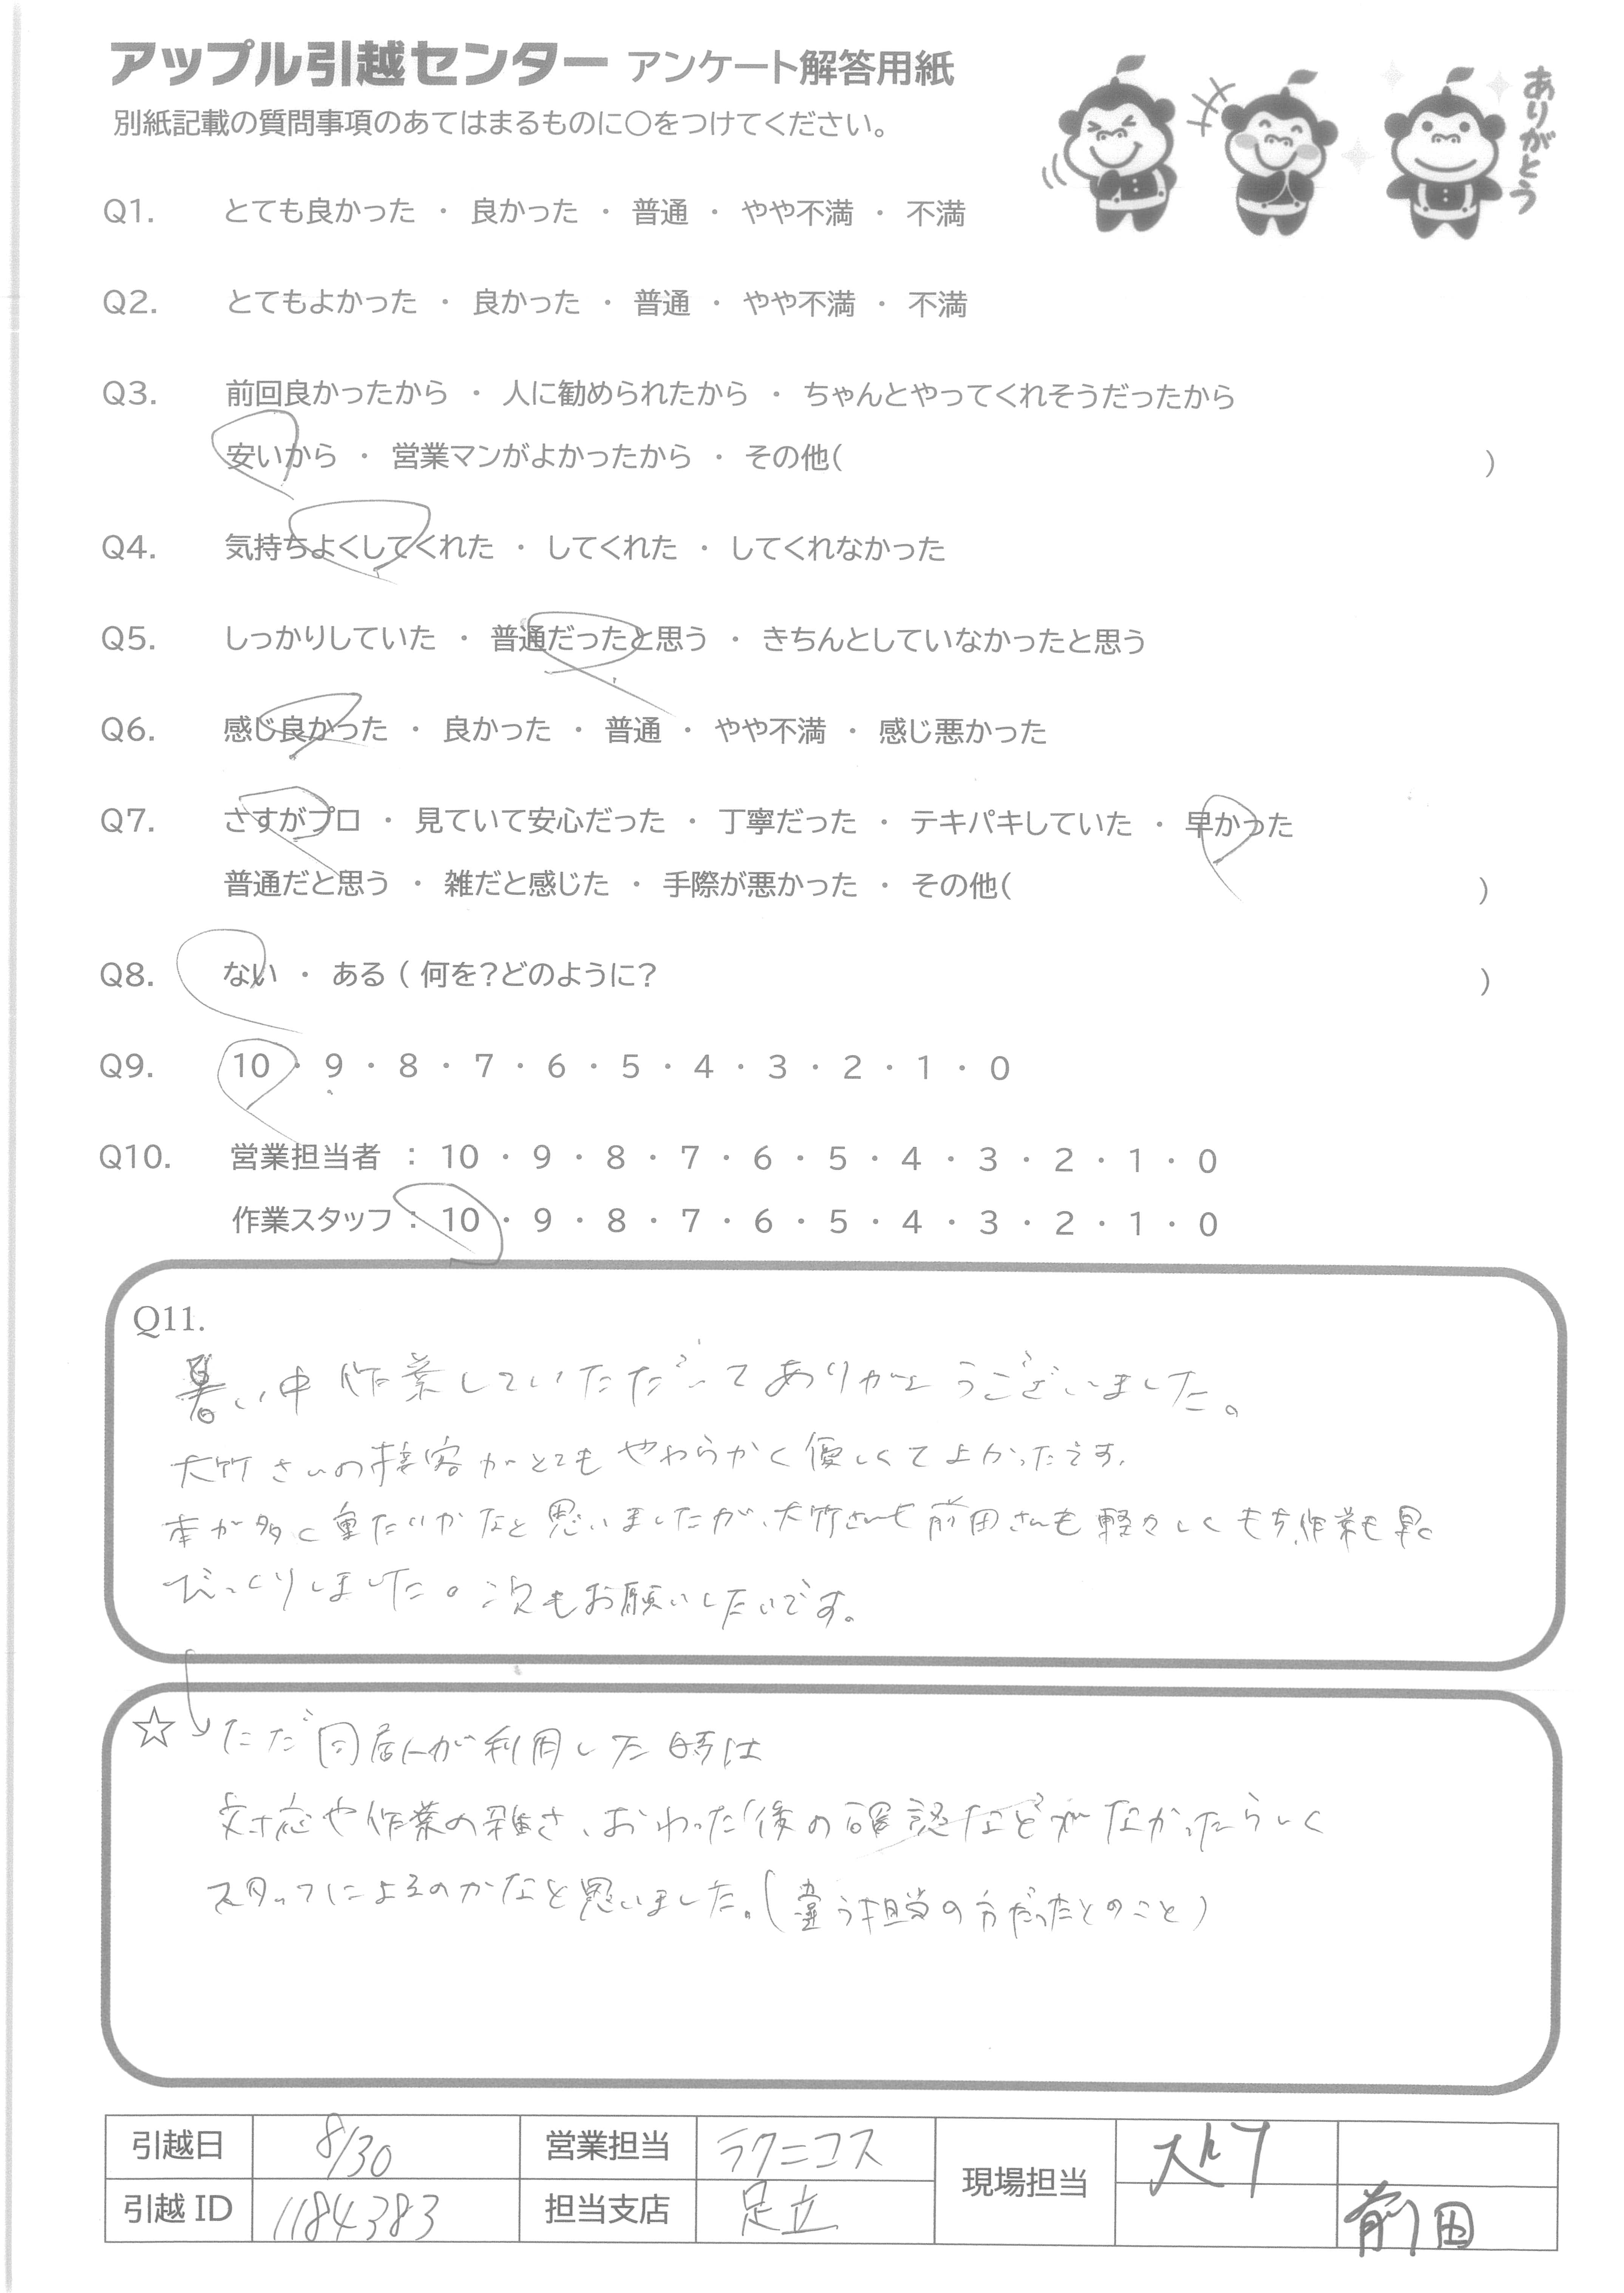 アップル引越センター アンケート解答用紙
別紙記載の質問事項のあてはまるものに○をつけてください。
ありがとう
Q1. とても良かった ・ 良かった ・ 普通 ・ やや不満 ・ 不満
Q2. とてもよかった ・ 良かった ・ 普通 ・ やや不満 ・ 不満
Q3. 前回良かったから ・ 人に勧められたから ・ ちゃんとやってくれそうだったから
安いから ・ 営業マンがよかったから ・ その他( )
Q4. 気持ちよくしてくれた ・ してくれた ・ してくれなかった
Q5. しっかりしていた ・ 普通だったと思う ・ きちんとしていなかったと思う
Q6. 感じ良かった ・ 良かった ・ 普通 ・ やや不満 ・ 感じ悪かった
Q7. さすがプロ ・ 見ていて安心だった ・ 丁寧だった ・ テキパキしていた ・ 早かった
普通だと思う ・ 雑だと感じた ・ 手際が悪かった ・ その他( )
Q8. ない ・ ある ( 何を?どのように? )
Q9. 10 ・ 9 ・ 8 ・ 7 ・ 6 ・ 5 ・ 4 ・ 3 ・ 2 ・ 1 ・ 0
Q10. 営業担当者 : 10 ・ 9 ・ 8 ・ 7 ・ 6 ・ 5 ・ 4 ・ 3 ・ 2 ・ 1 ・ 0
作業スタッフ : 10 ・ 9 ・ 8 ・ 7 ・ 6 ・ 5 ・ 4 ・ 3 ・ 2 ・ 1 ・ 0
Q11.
暑い中作業していただいてありがとうございました。
大竹さんの接客がとてもやわらかく優しくてよかったです。
本が多く重たいかなと思いましたが、大竹さんも前田さんも軽々しくもち、作業も早く
びっくりしました。次もお願いしたいです。
☆ ただ同居人が利用した時は
対応や作業の雑さ、おわった後の確認などがなかったらしく
スタッフによるのかなと思いました。(違う担当の方だったとのこと)
引越日 8/30 営業担当 ラクニコス 現場担当
引越ID 1184383 担当支店 足立 前田